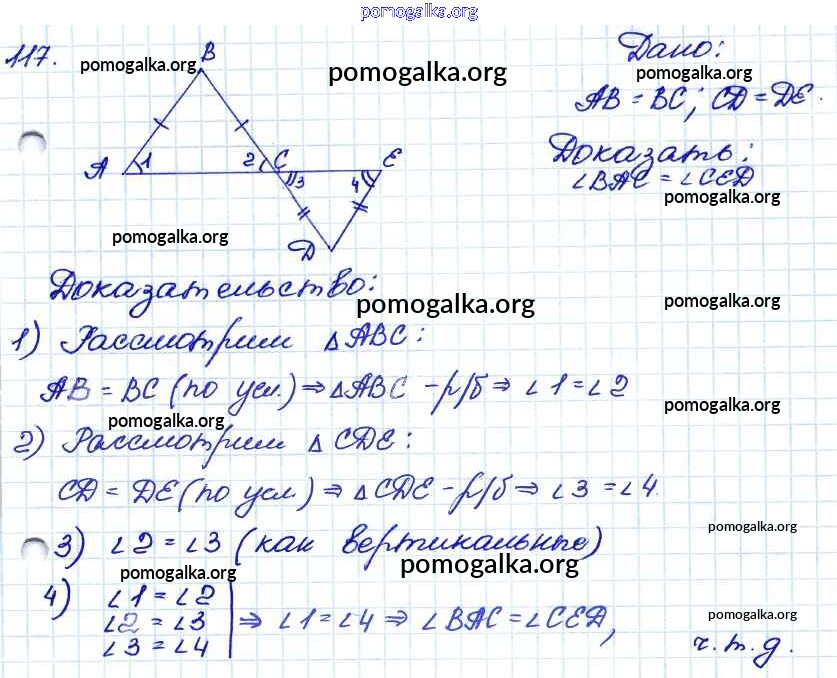 pomogalka.org
117.
B
pomogalka.org
pomogalka.org
Дано:
pomogalka.org
AB = BC; CD = DE.
A 1 2 C E
3 4
Доказать:
∠BAC = ∠CED
pomogalka.org
pomogalka.org
D
Доказательство:
pomogalka.org
pomogalka.org
1) Рассмотрим △ABC:
AB = BC (по усл.) ⇒ △ABC - р/б ⇒ ∠1 = ∠2
pomogalka.org
pomogalka.org
2) Рассмотрим △CDE:
CD = DE (по усл.) ⇒ △CDE - р/б ⇒ ∠3 = ∠4.
pomogalka.org
3) ∠2 = ∠3 (как вертикальные)
pomogalka.org
pomogalka.org
4) ∠1 = ∠2
∠2 = ∠3 ⇒ ∠1 = ∠4 ⇒ ∠BAC = ∠CED,
∠3 = ∠4
pomogalka.org
ч.т.д.